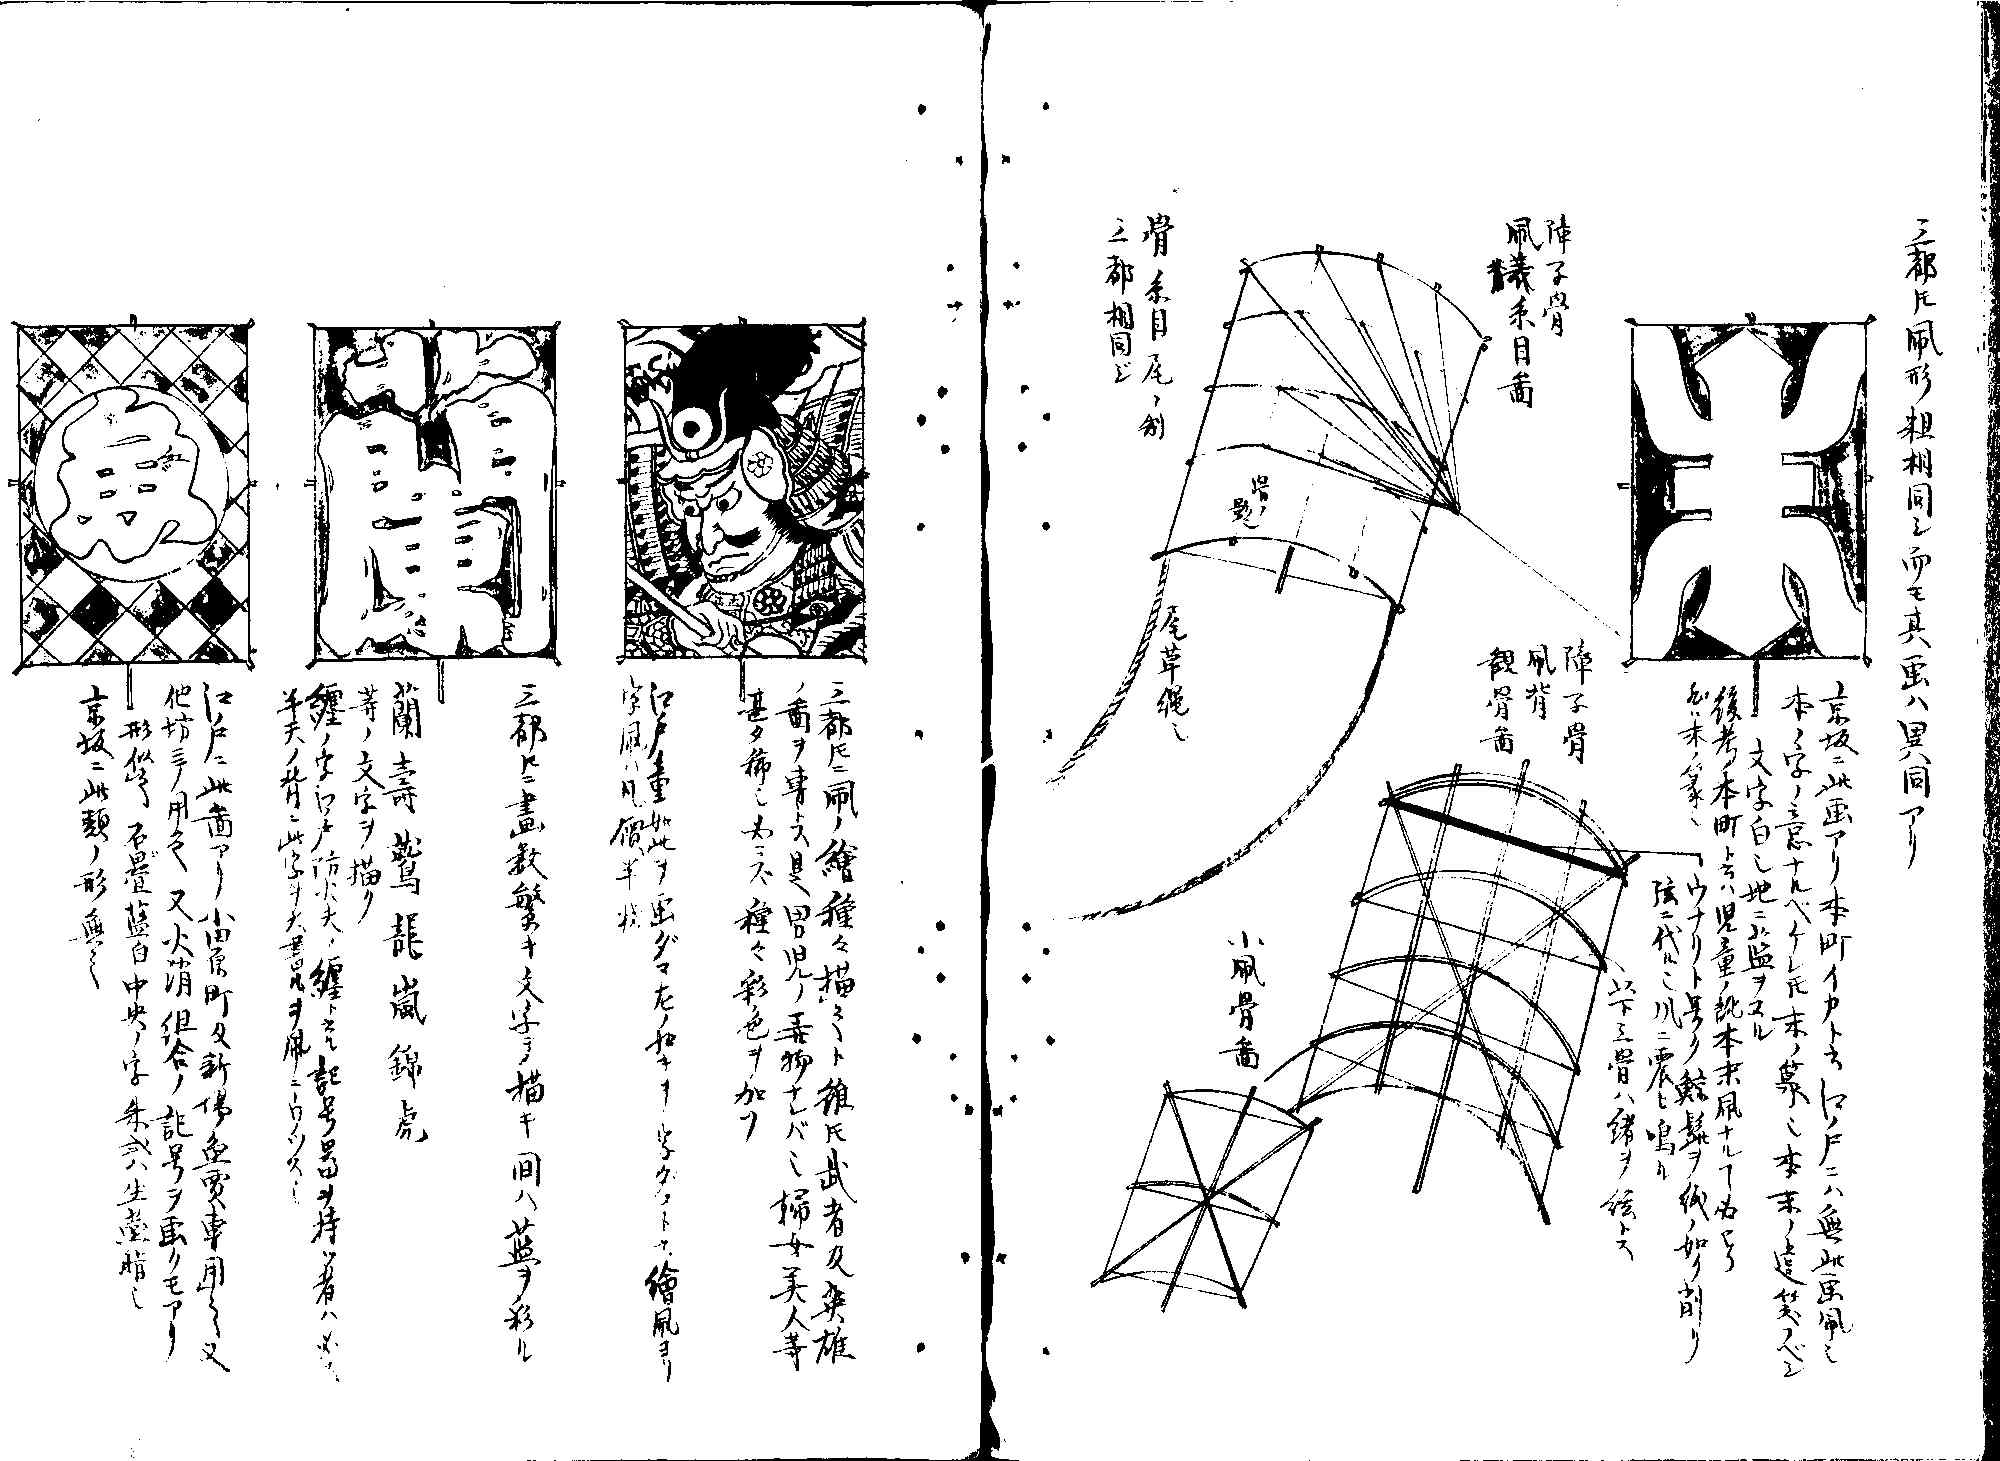 三都トモ凧形粗相同シ而モ其画ハ異同アリ
京坂ニ此画アリ本町イカト云江戸ニハ無此画凧也
本ノ字ノ意ナルベケレトモ末ノ篆也本末ノ違笑フベシ
文字白シ地ニ藍ヲヌル
陣子骨
凧表糸目図
骨糸目尾ノ制
三都相同ジ
骨ノ
尾草縄也
障子骨
凧背
観骨図
ウナリト号ク鯨鬚ヲ紙ノ如ク削リ
弦ニ代ル也風ニ震ヒ鳴ル
以下三骨ハ緒ヲ絃トス
小凧骨図
三都トモニ凧ノ繪種々描クト雖トモ武者及英雄
ノ図ヲ専トス是男児ノ弄物ナレバ也婦女美人等
甚タ稀也大ニス種々彩色ヲ加フ
江戸童如此ヲ画ダコ左ノ如キヲ字ダコト云繪凧ヨリ
字凧ハ凡價半
三都トモニ畫数繁キ文字ヲ描キ間ハ藍ヲ彩ル
蘭壽鷲龍嵐錦虎
等ノ文字ヲ描ク
纏ノ字江戸防火夫ノ纏ト云ル記号ヲ持ツ者ハ必ス
半天ノ背ニ此字ヲ大書ルヲ凧ニウツス也
江戸ニ此図アリ小田原町及新場魚賈専用之又
他坊ニモ用之又火消組合ノ記号ヲ画クモアリ
形似タリ石畳藍白中央ノ字朱或ハ生臙脂也
京坂ニ此類ノ形無之